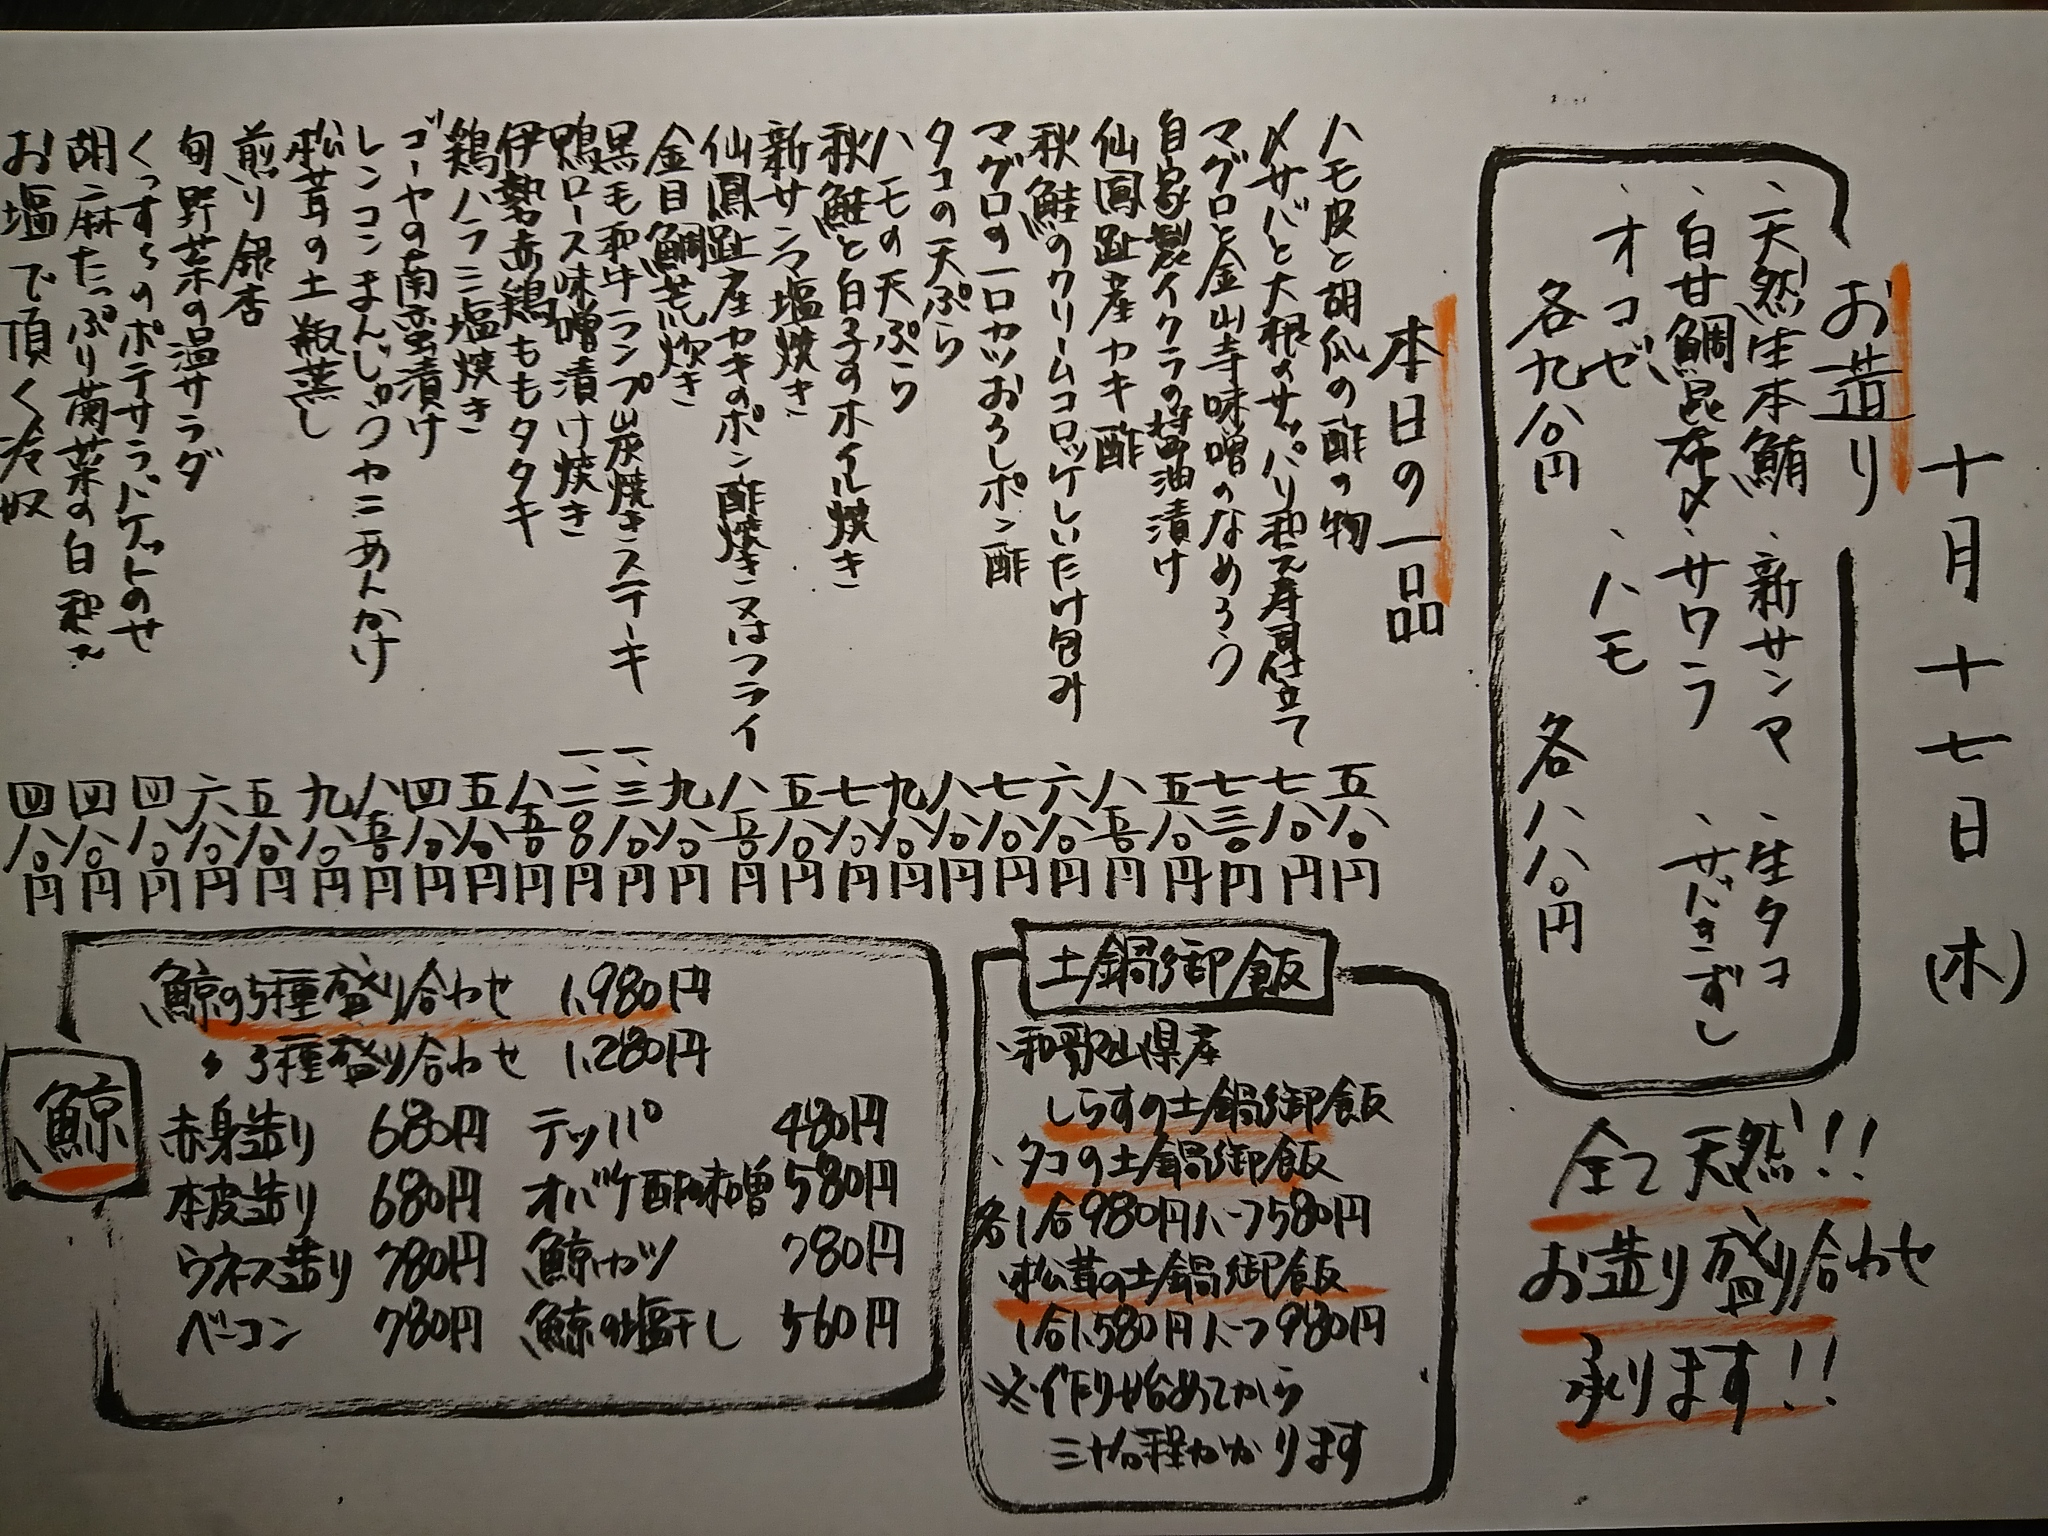 十月十七日(木)
お造り
、天然生本鮪 、新サンマ 、生タコ
、白甘鯛昆布〆 、サワラ 、サバきずし
、オコゼ 、ハモ
各九八〇円 各八八〇円
全て天然!!
お造り盛り合わせ
承ります!!
本日の一品
ハモ皮と胡瓜の酢の物 五八〇円
〆サバと大根のサッパリ和え寿司仕立て 七八〇円
マグロと金山寺味噌のなめろう 七三〇円
自家製イクラの醤油漬け 五八〇円
仙鳳趾産カキ酢 八五〇円
秋鮭のクリームコロッケしいたけ包み 六八〇円
マグロの一口カツおろしポン酢 七八〇円
タコの天ぷら 八八〇円
ハモの天ぷら 九八〇円
秋鮭と白子のホイル焼き 七八〇円
新サンマ塩焼き 五八〇円
仙鳳趾産カキのポン酢焼き又はフライ 八五〇円
金目鯛荒炊き 九八〇円
黒毛和牛ランプ炭焼きステーキ 一、三八〇円
鴨ロース味噌漬け焼き 一、二〇〇円
伊勢赤鶏ももタタキ 八五〇円
鶏ハラミ塩焼き 五八〇円
ゴーヤの南蛮漬け 四八〇円
レンコンまんじゅうカニあんかけ 八五〇円
松茸の土瓶蒸し 九八〇円
煎り銀杏 五八〇円
旬野菜の温サラダ 六八〇円
くっすらのポテサラバゲットのせ 四八〇円
胡麻たっぷり菊菜の白和え 四八〇円
お塩で頂く冷奴 四八〇円
土鍋御飯
、和歌山県産
しらすの土鍋御飯
、タコの土鍋御飯
各1合980円ハーフ580円
、松茸の土鍋御飯
1合1,580円ハーフ980円
※作り始めてから
三十分程かかります
鯨
鯨の5種盛り合わせ 1,980円
〃3種盛り合わせ 1,280円
赤身造り 680円 テッパ 480円
本皮造り 680円 オバケ酢味噌 580円
ウネス造り 780円 鯨カツ 780円
ベーコン 780円 鯨の塩干し 560円